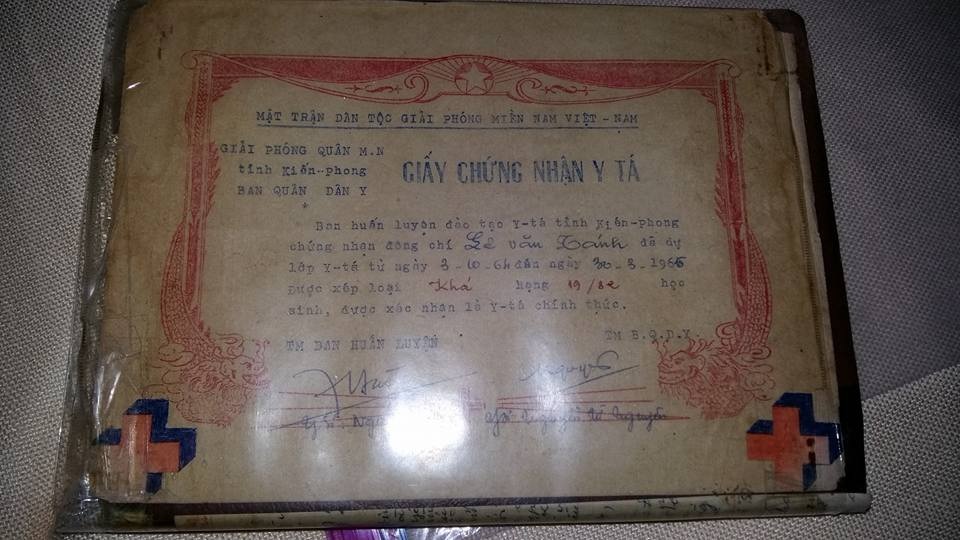 MẶT TRẬN DÂN TỘC GIẢI PHÓNG MIỀN NAM VIỆT-NAM
GIẢI PHÓNG QUÂN M.N
tỉnh Kiến-Phong
BAN QUÂN DÂN Y
GIẤY CHỨNG NHẬN Y TÁ
Ban huấn luyện đào tạo Y-tá tỉnh Kiến-Phong
chứng nhận đồng chí Lê văn Xánh đã dự
lớp Y-tá từ ngày 3-10-64 đến ngày 30-3-1965
Được xếp loại Khá hạng 19/52 học
sinh, được xác nhận là Y-tá chính thức.
TM BAN HUẤN LUYỆN
TM B.Q.D.Y.
Nguyễn